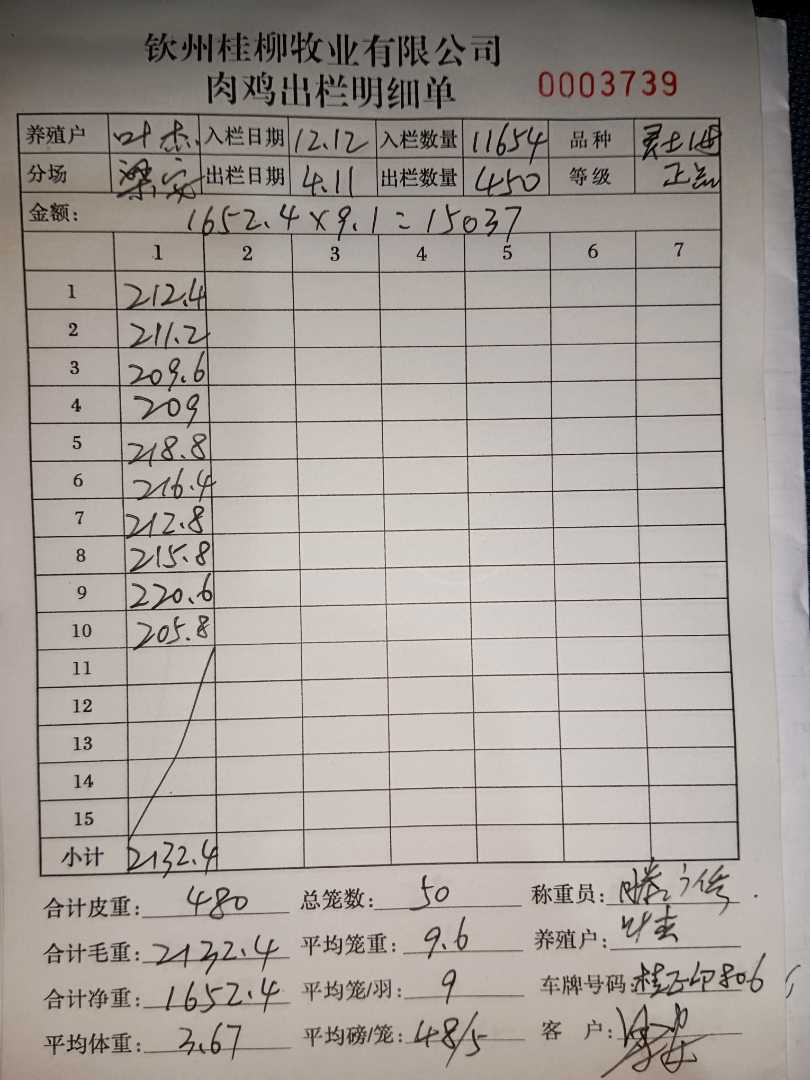 钦州桂柳牧业有限公司
肉鸡出栏明细单 0003739
养殖户 叶杰 入栏日期 12.12 入栏数量 11654 品种
分场 梁 出栏日期 4.11 出栏数量 450 等级 正
金额: 1652.4×9.1=15037
1 2 3 4 5 6 7
1 212.4
2 211.2
3 209.6
4 209
5 218.8
6 216.4
7 212.8
8 215.8
9 220.6
10 205.8
11
12
13
14
15
小计 2132.4
合计皮重: 480 总笼数: 50 称重员:
合计毛重: 2132.4 平均笼重: 9.6 养殖户: 叶杰
合计净重: 1652.4 平均笼/羽: 9 车牌号码:
平均体重: 3.67 平均磅/笼: 48/5 客 户: